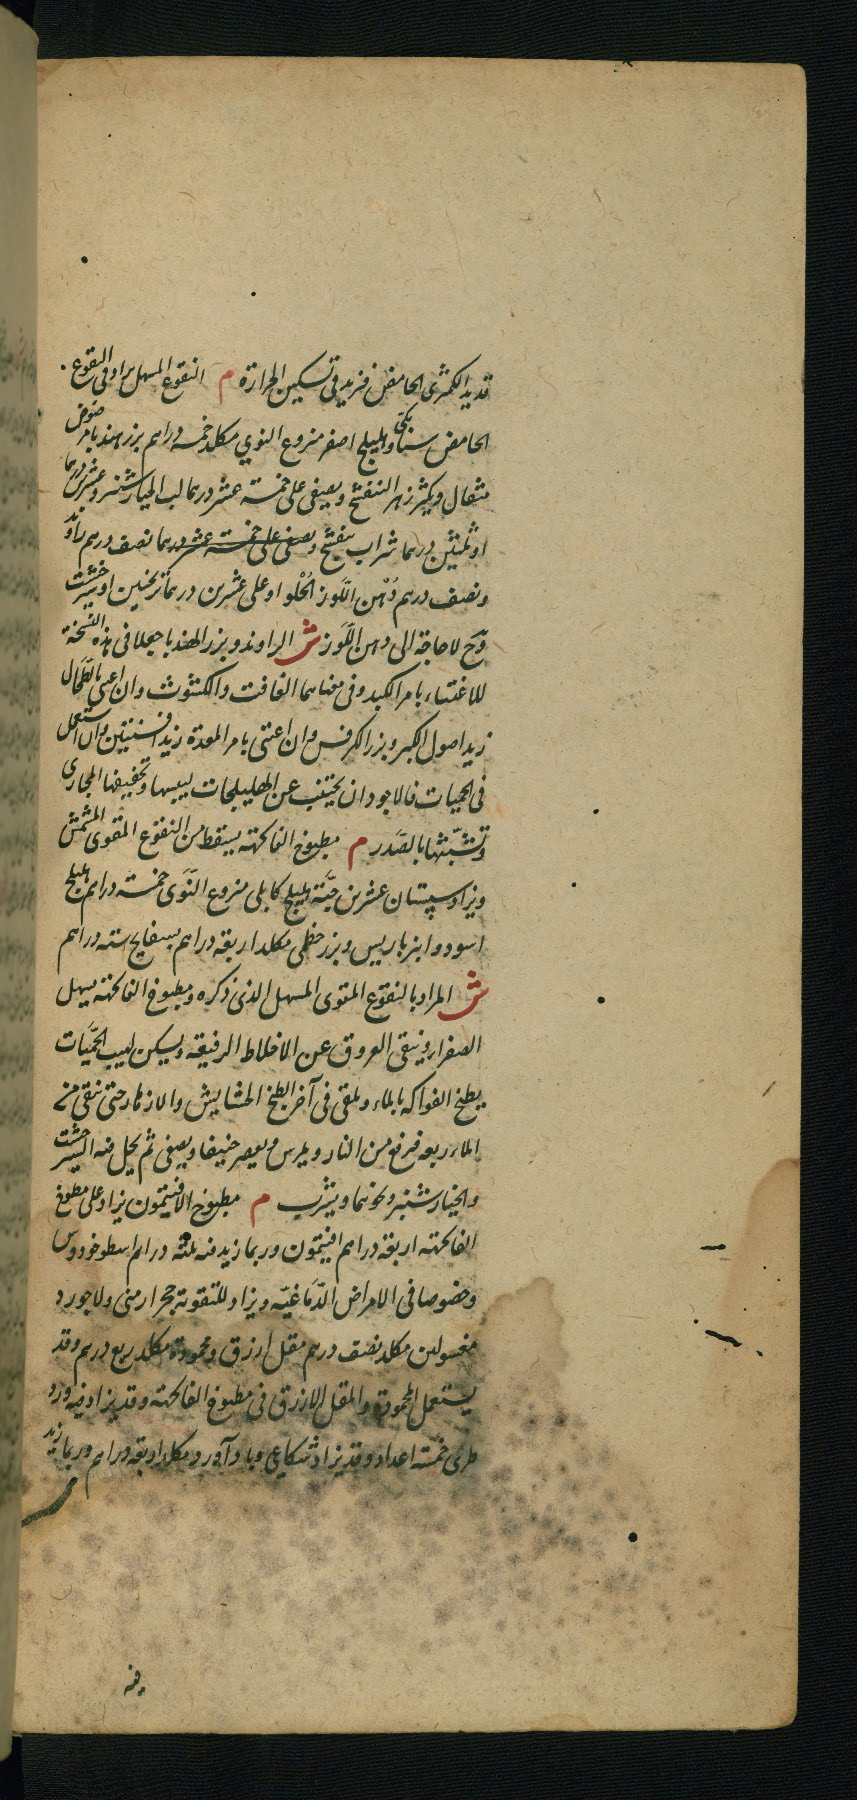 قديد الكمثرى الحامض فزيد فى تسكين الحرارة م النقوع المسهل يزاد فى النقوع
الحامض سنا مكى وهليلج اصفر منزوع النوى مكلد خمسة دراهم بزر هندبا مرضوض
مثقال ويكثر زهر البنفسج ويصفى على خمسة عشر درهما لب الخيار شنبر وعشرين درهما
او ثلثين درهما شراب بنفسج ويصفى على خمسة عشر درهما نصف درهم راوند
ونصف درهم دهن اللوز الحلو او على عشرين درهما ترنجبين او شيرخشت
وح لا حاجة الى دهن اللوز ش الراوند وبزر الهندبا جعلا فى هذه النسخة
للاعتناء بامر الكبد وفى معناهما الغافت والكشوث وان اعتنى بالطحال
زيد اصول الكبر وبزر الكرفس وان اعتنى بامر المعدة زيد افسنتين وان استعمل
فى الحميات فالاجود ان يجتنب عن الهليلجات ليبسها وتجفيفها المجارى
وتشبثها بالصدر م مطبوخ الفاكهة يسقط من النقوع المقوى المشمش
ويزاد سپستان عشرين حبة هليلج كابلى منزوع النوى خمسة دراهم هليلج
اسود وانبر باريس وبزر خطمى مكلد اربعة دراهم بسفايج ستة دراهم
ش المراد بالنقوع المقوى المسهل الذى ذكره ومطبوخ الفاكهة يسهل
الصفراء وينقى العروق عن الاخلاط الرقيقة ويسكن لهيب الحميات
يطبخ الفواكه بالماء ويلقى فى آخر الطبخ الحشايش والازهار حتى تبقى من
الماء ربعه فيرفع من النار ويمرس ويعصر خفيفا ويصفى ثم يحل فيه الشيرخشت
والخيار شنبر ونحوهما ويشرب م مطبوخ الافتيمون يزاد على مطبوخ
الفاكهة اربعة دراهم افتيمون وربما زيد فيه ثلثة دراهم اسطوخودوس
وخصوصا فى الامراض الدماغية ويزاد للتقوية حجر ارمنى ولاجورد
مغسولين مكلد نصف درهم مقل ازرق ومحمودة مكلد ربع درهم وقد
يستعمل المحمودة والمقل الازرق فى مطبوخ الفاكهة وقد يزاد فيه ورد
طرى خمسة اعداد وقد يزاد شكاعى وبادآورد مكلد اربعة دراهم وربما زيد
فيه